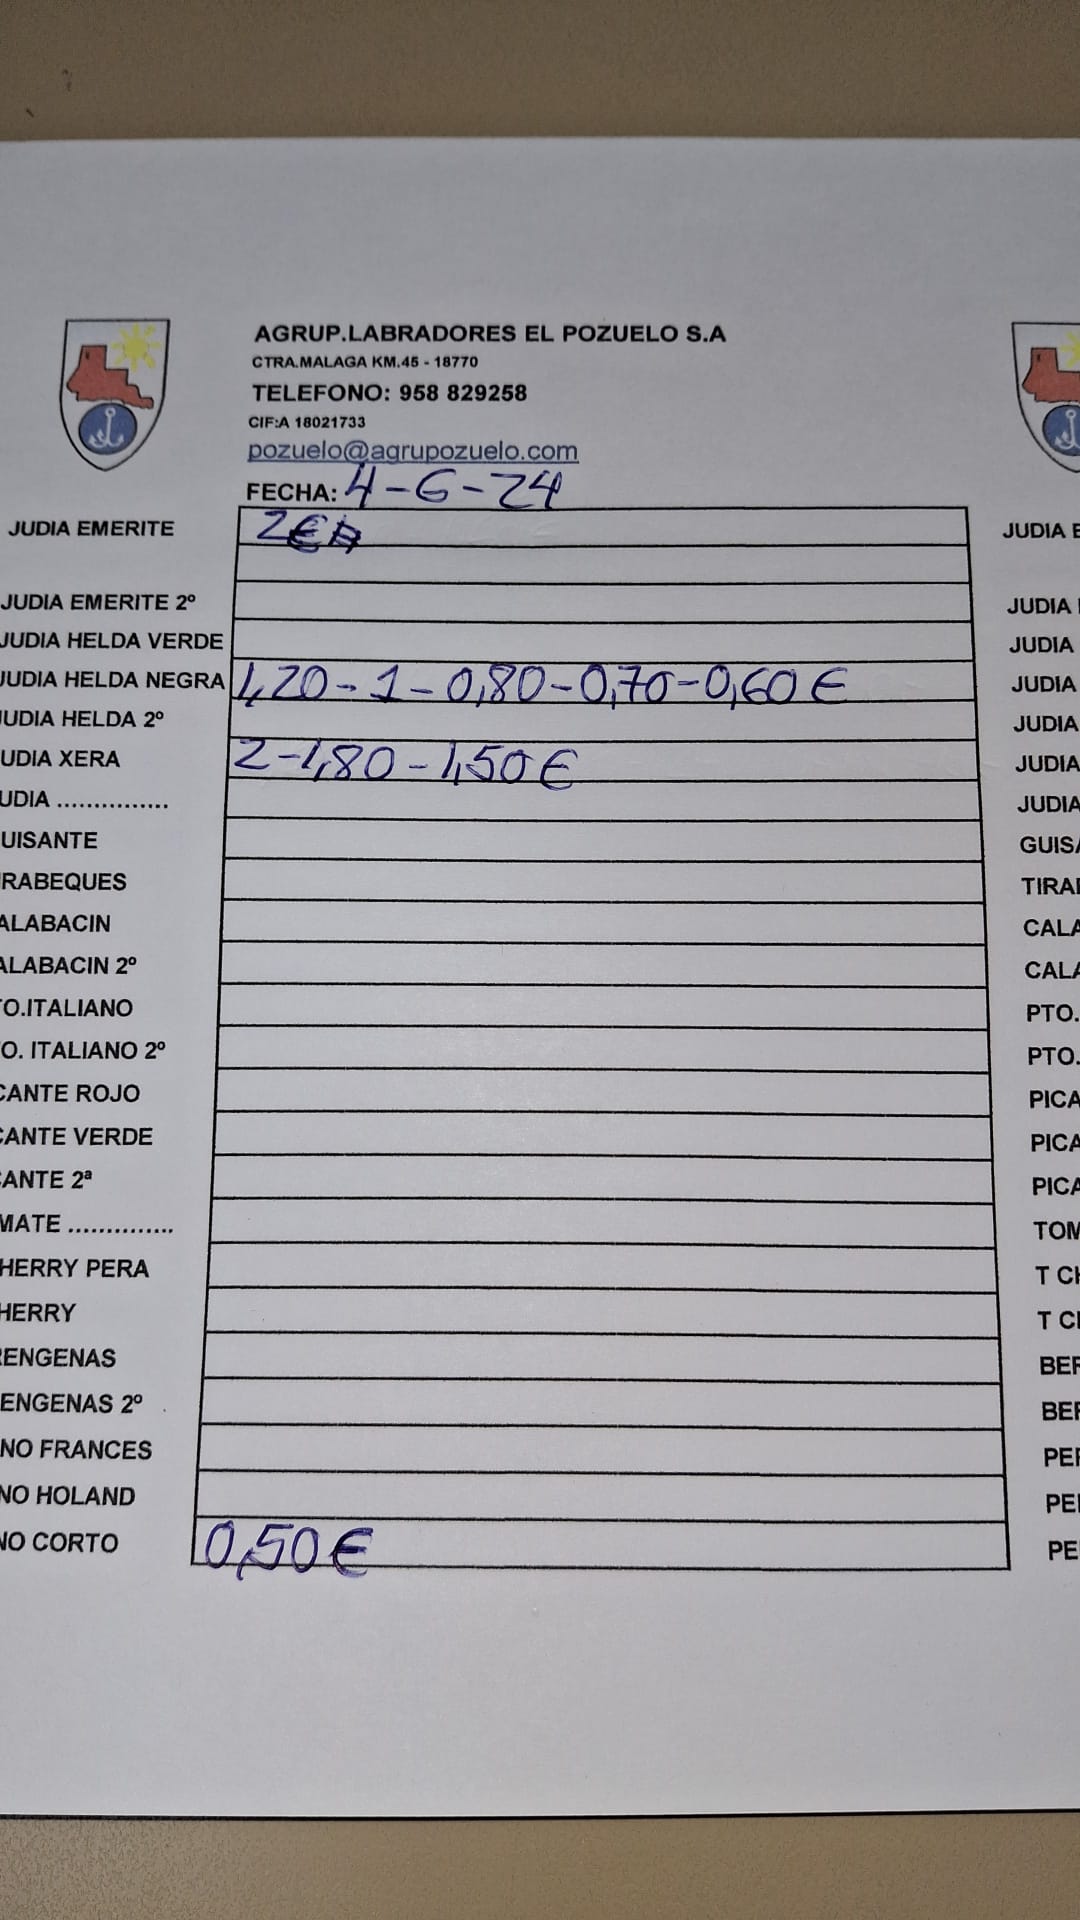 AGRUP.LABRADORES EL POZUELO S.A
CTRA.MALAGA KM.45 - 18770
TELEFONO: 958 829258
CIF:A 18021733
pozuelo@agrupozuelo.com
FECHA: 4-6-24
JUDIA EMERITE 2€ JUDIA E
JUDIA EMERITE 2º JUDIA
JUDIA HELDA VERDE JUDIA
JUDIA HELDA NEGRA 1,20-1-0,80-0,70-0,60€ JUDIA
JUDIA HELDA 2º JUDIA
UDIA XERA 2-1,80-1,50€ JUDIA
UDIA ............... JUDIA
UISANTE GUISA
RABEQUES TIRA
ALABACIN CALA
ALABACIN 2º CALA
O.ITALIANO PTO.
O. ITALIANO 2º PTO.
CANTE ROJO PICA
CANTE VERDE PICA
ANTE 2ª PICA
MATE .............. TOM
HERRY PERA T CH
HERRY T CH
ENGENAS BER
ENGENAS 2º BER
NO FRANCES PE
NO HOLAND PE
NO CORTO 0,50€ PE